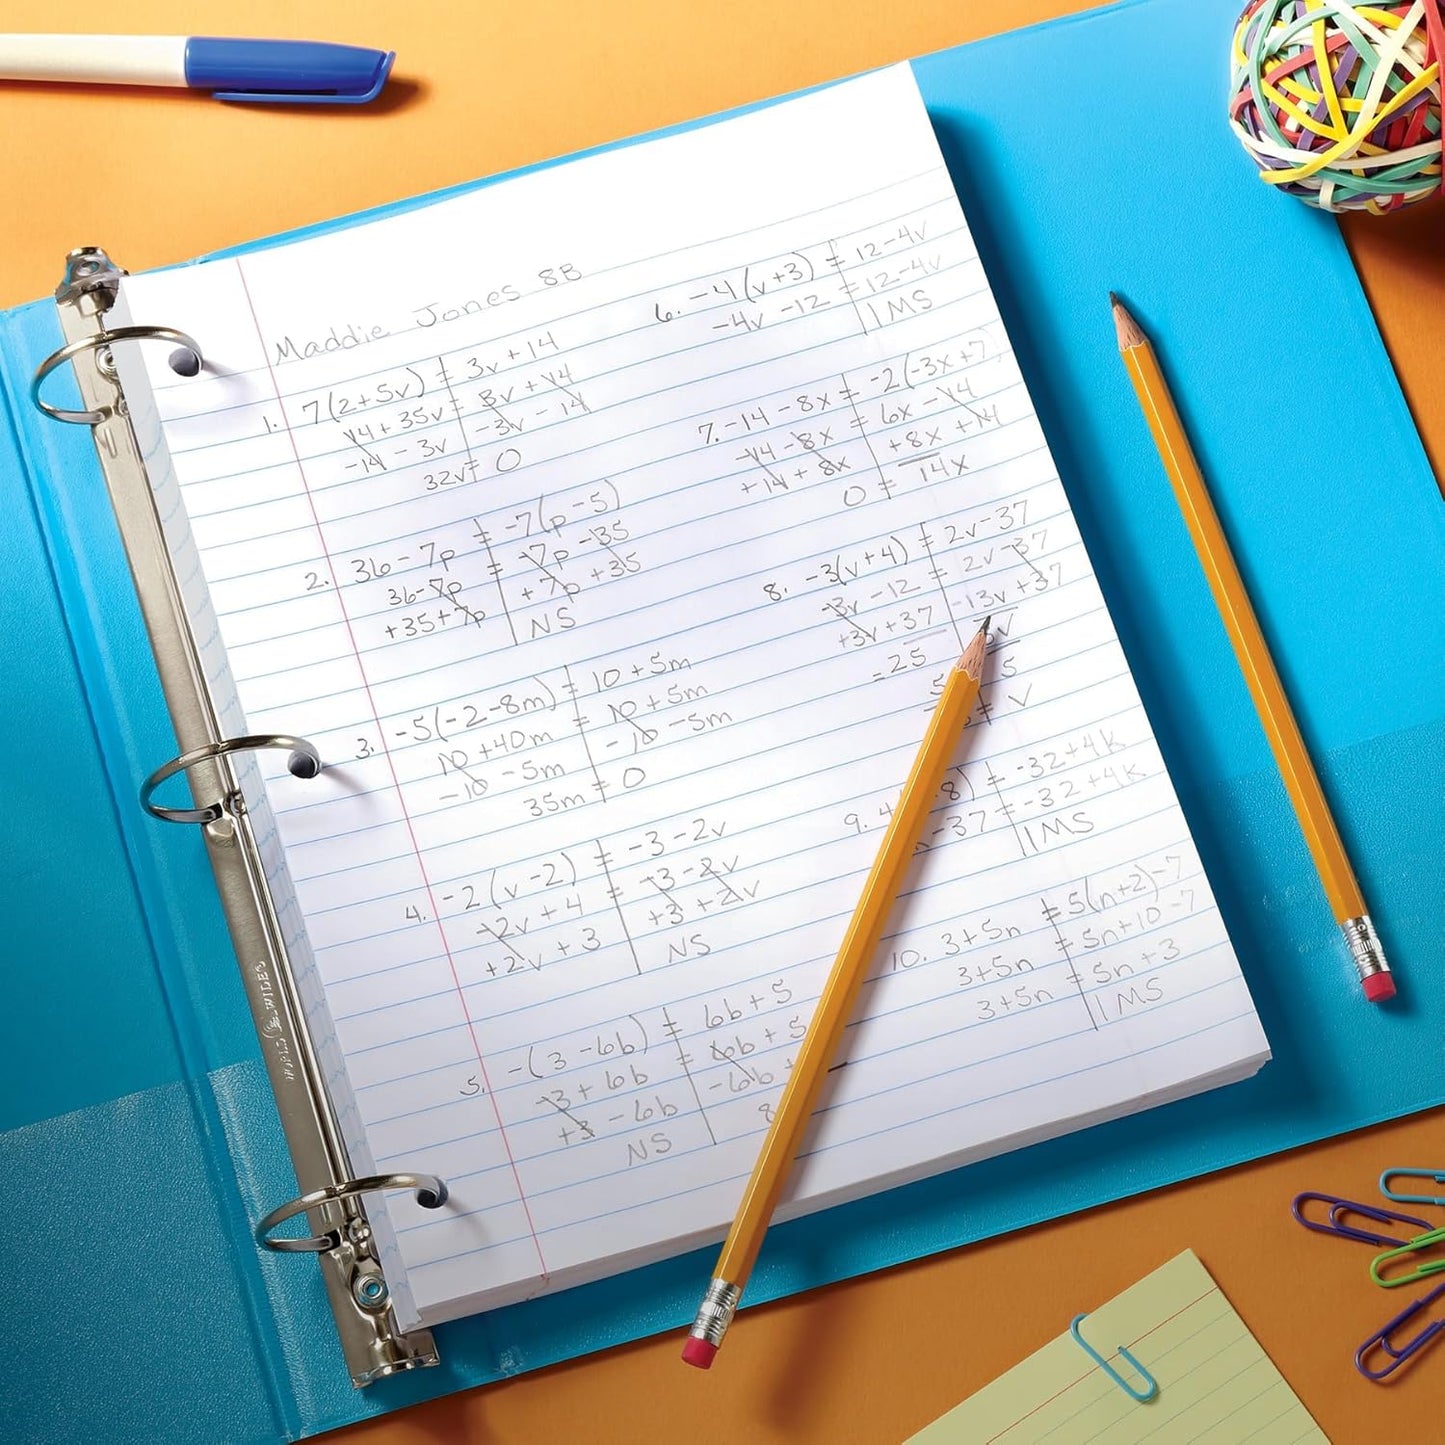 Maddie Jones 8B
1. 7(2+5v) = 3v+14
14+35v = 3v+14
-14 - 3v -3v - 14
32v = 0
2. 36-7p = -7(p-5)
36-7p = -7p-35
+35+7p +7p+35
NS
3. -5(-2-8m) = 10+5m
10+40m = 10+5m
-10 -5m -10 -5m
35m = 0
4. -2(v-2) = -3-2v
-2v+4 = -3-2v
+2v+3 +3+2v
NS
5. -(3-6b) = 6b+5
-3+6b = 6b+5
+3-6b -6b+
NS 8
6. -4(v+3) = 12-4v
-4v-12 = 12-4v
IMS
7. -14-8x = -2(-3x+7)
-14-8x = 6x-14
+14+8x +8x+14
0 = 14x
8. -3(v+4) = 2v-37
-3v-12 = 2v-37
+3v+37 -13v+37
=25 5v
5 5
= v
9. 4 8) = -32+4k
-37 = -32+4k
IMS
10. 3+5n = 5(n+2)-7
3+5n = 5n+10-7
3+5n = 5n+3
IMS
WORLD WIDES